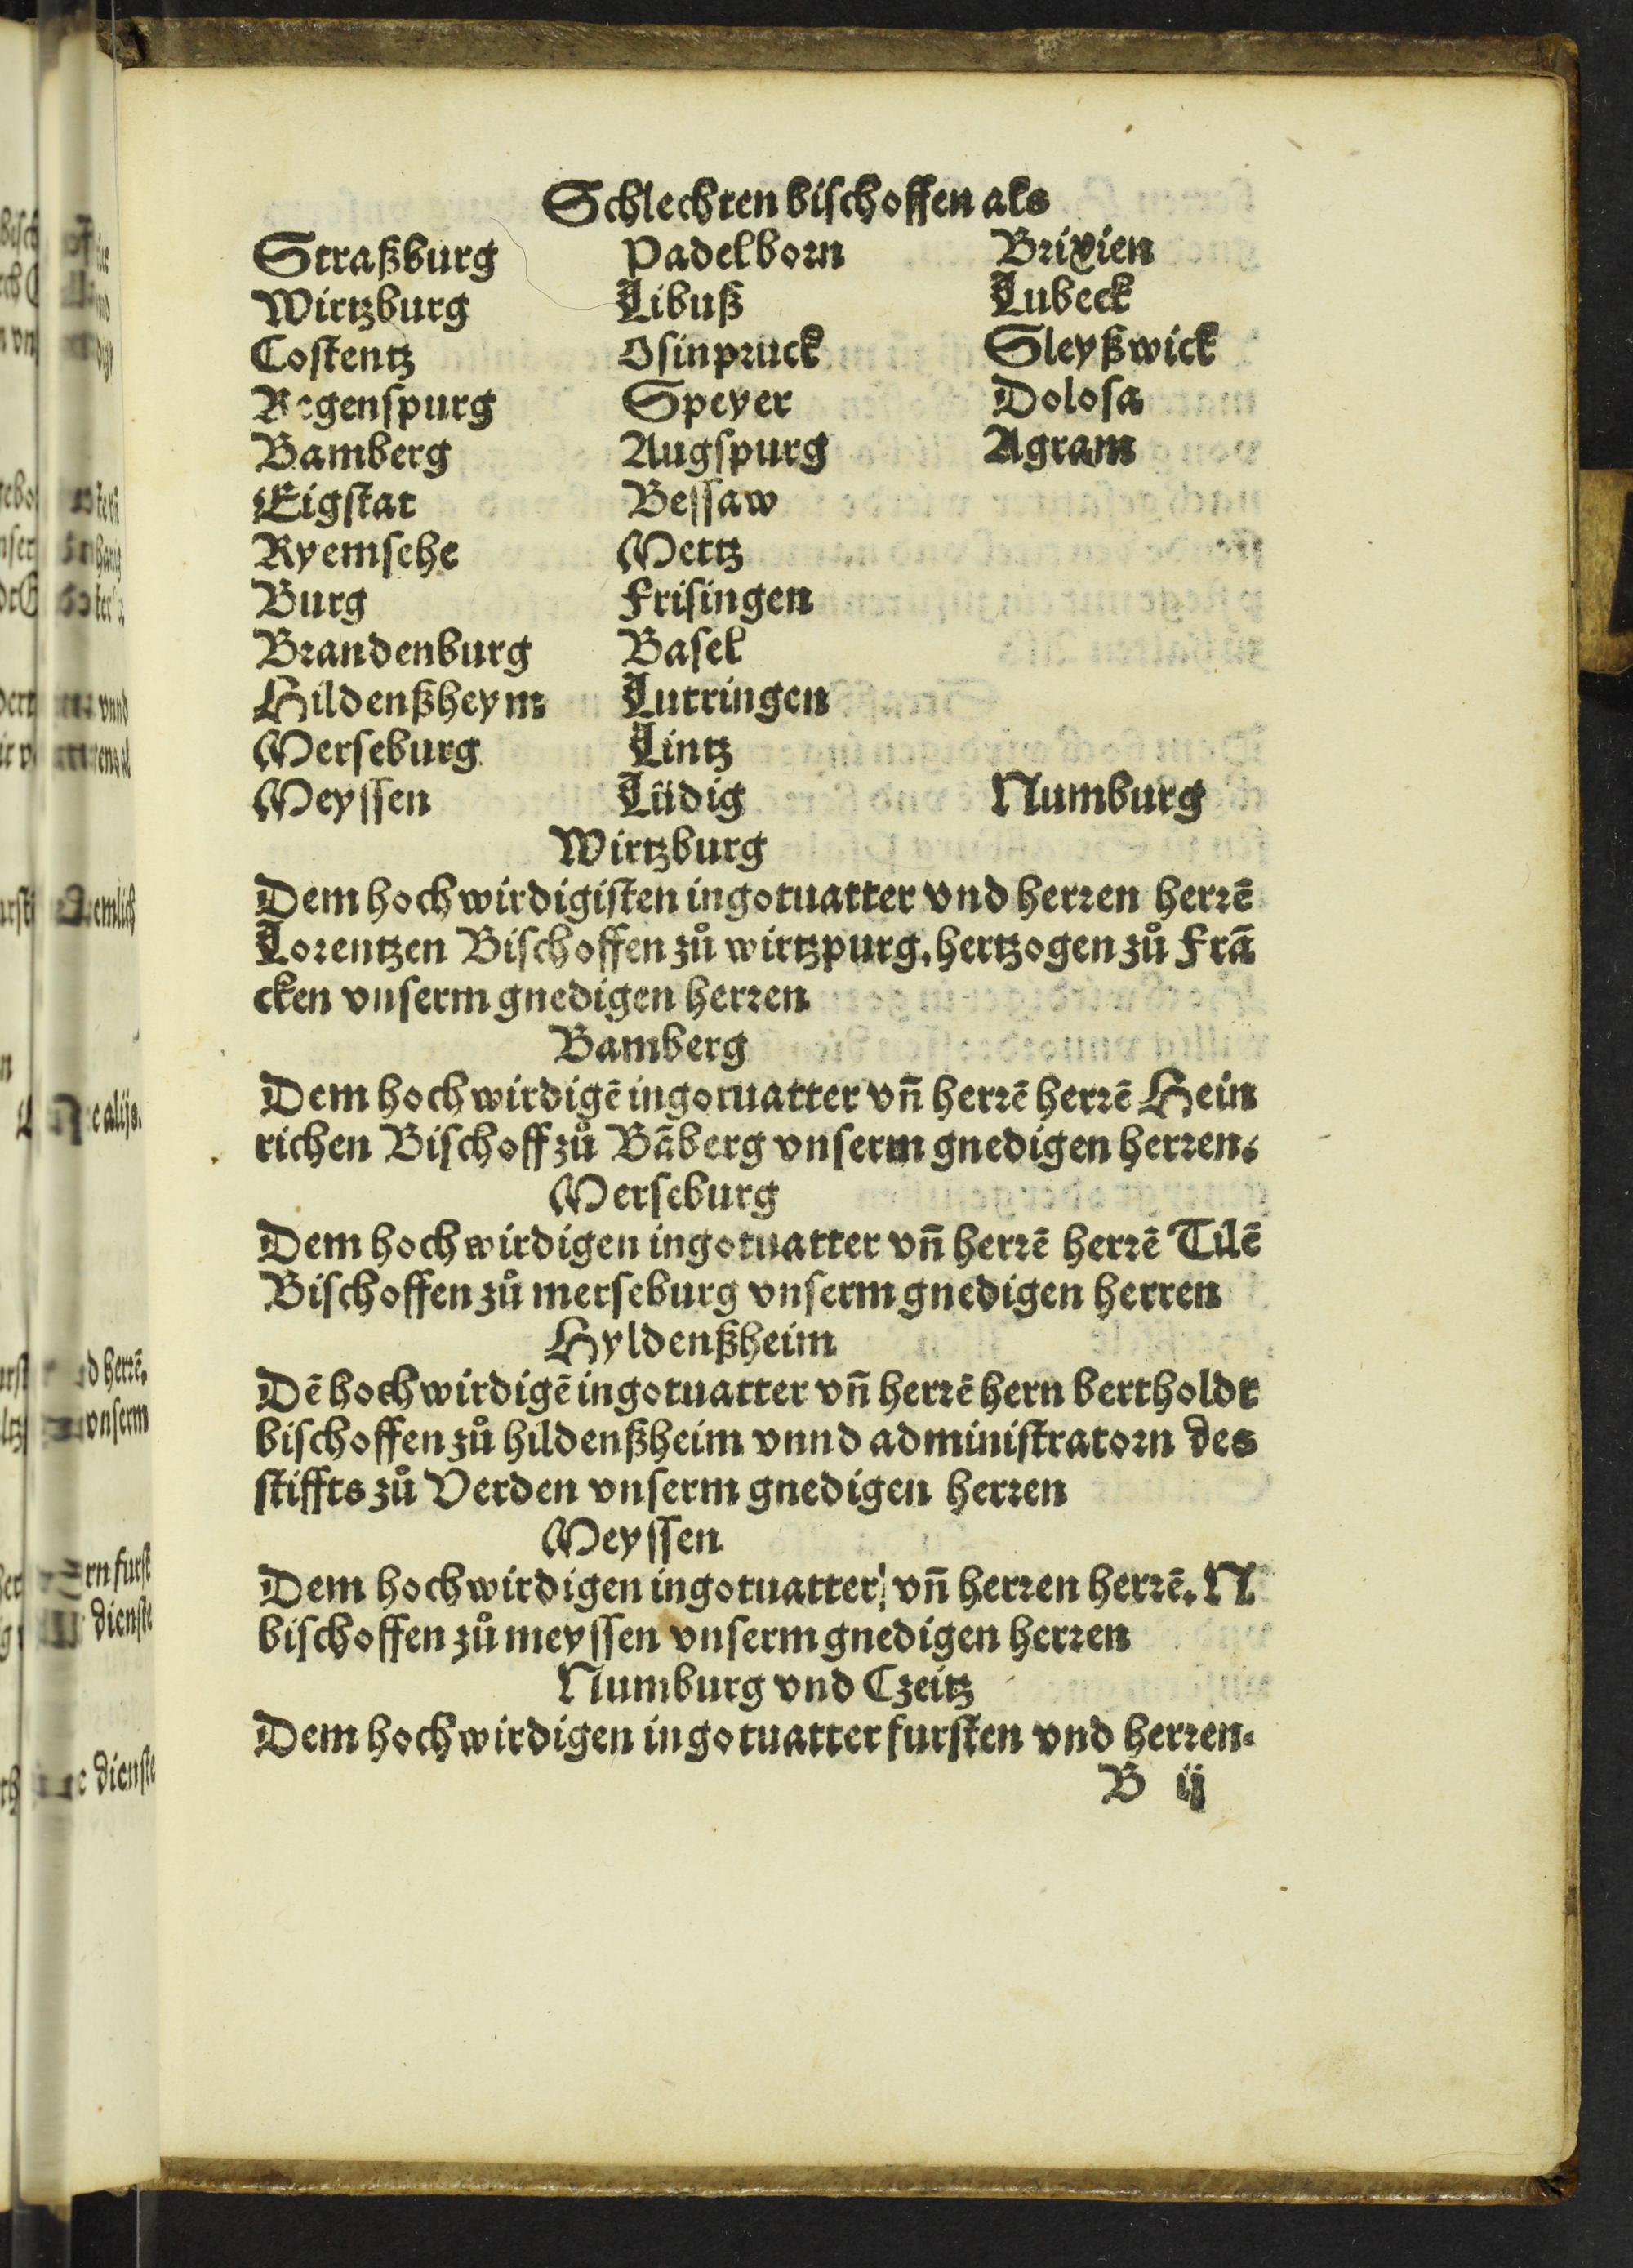 Schlechten bischoffen als
Straßburg Padelborn Brixien
Wirtzburg Libuß Lubeck
Costentz Osinpruck Sleyßwick
Regenspurg Speyer Dolosa
Bamberg Augspurg Agram
Eigstat Bessaw
Ryemsehe Mertz
Burg Frisingen
Brandenburg Basel
Hildenßheym Lutringen
Merseburg Lintz
Meyssen Lüdig Numburg
Wirtzburg
Dem hochwirdigisten in gotuatter vnd herren herrē
Lorentzen Bischoffen zů wirtzpurg, hertzogen zů Frā
cken vnserm gnedigen herren
Bamberg
Dem hochwirdigē in gotuatter vn̄ herrē herrē Hein
richen Bischoff zů Bāberg vnserm gnedigen herren.
Merseburg
Dem hochwirdigen in gotuatter vn̄ herrē herrē Tilē
Bischoffen zů merseburg vnserm gnedigen herren
Hyldenßheim
Dē hochwirdigē in gotuatter vn̄ herrē hern bertholdt
bischoffen zů hildenßheim vnnd administratorn des
stiffts zů Verden vnserm gnedigen herren
Meyssen
Dem hochwirdigen in gotuatter vn̄ herren herrē. N
bischoffen zů meyssen vnserm gnedigen herren
Numburg vnd Czeitz
Dem hochwirdigen in gotuatter fursten vnd herren.
B ij